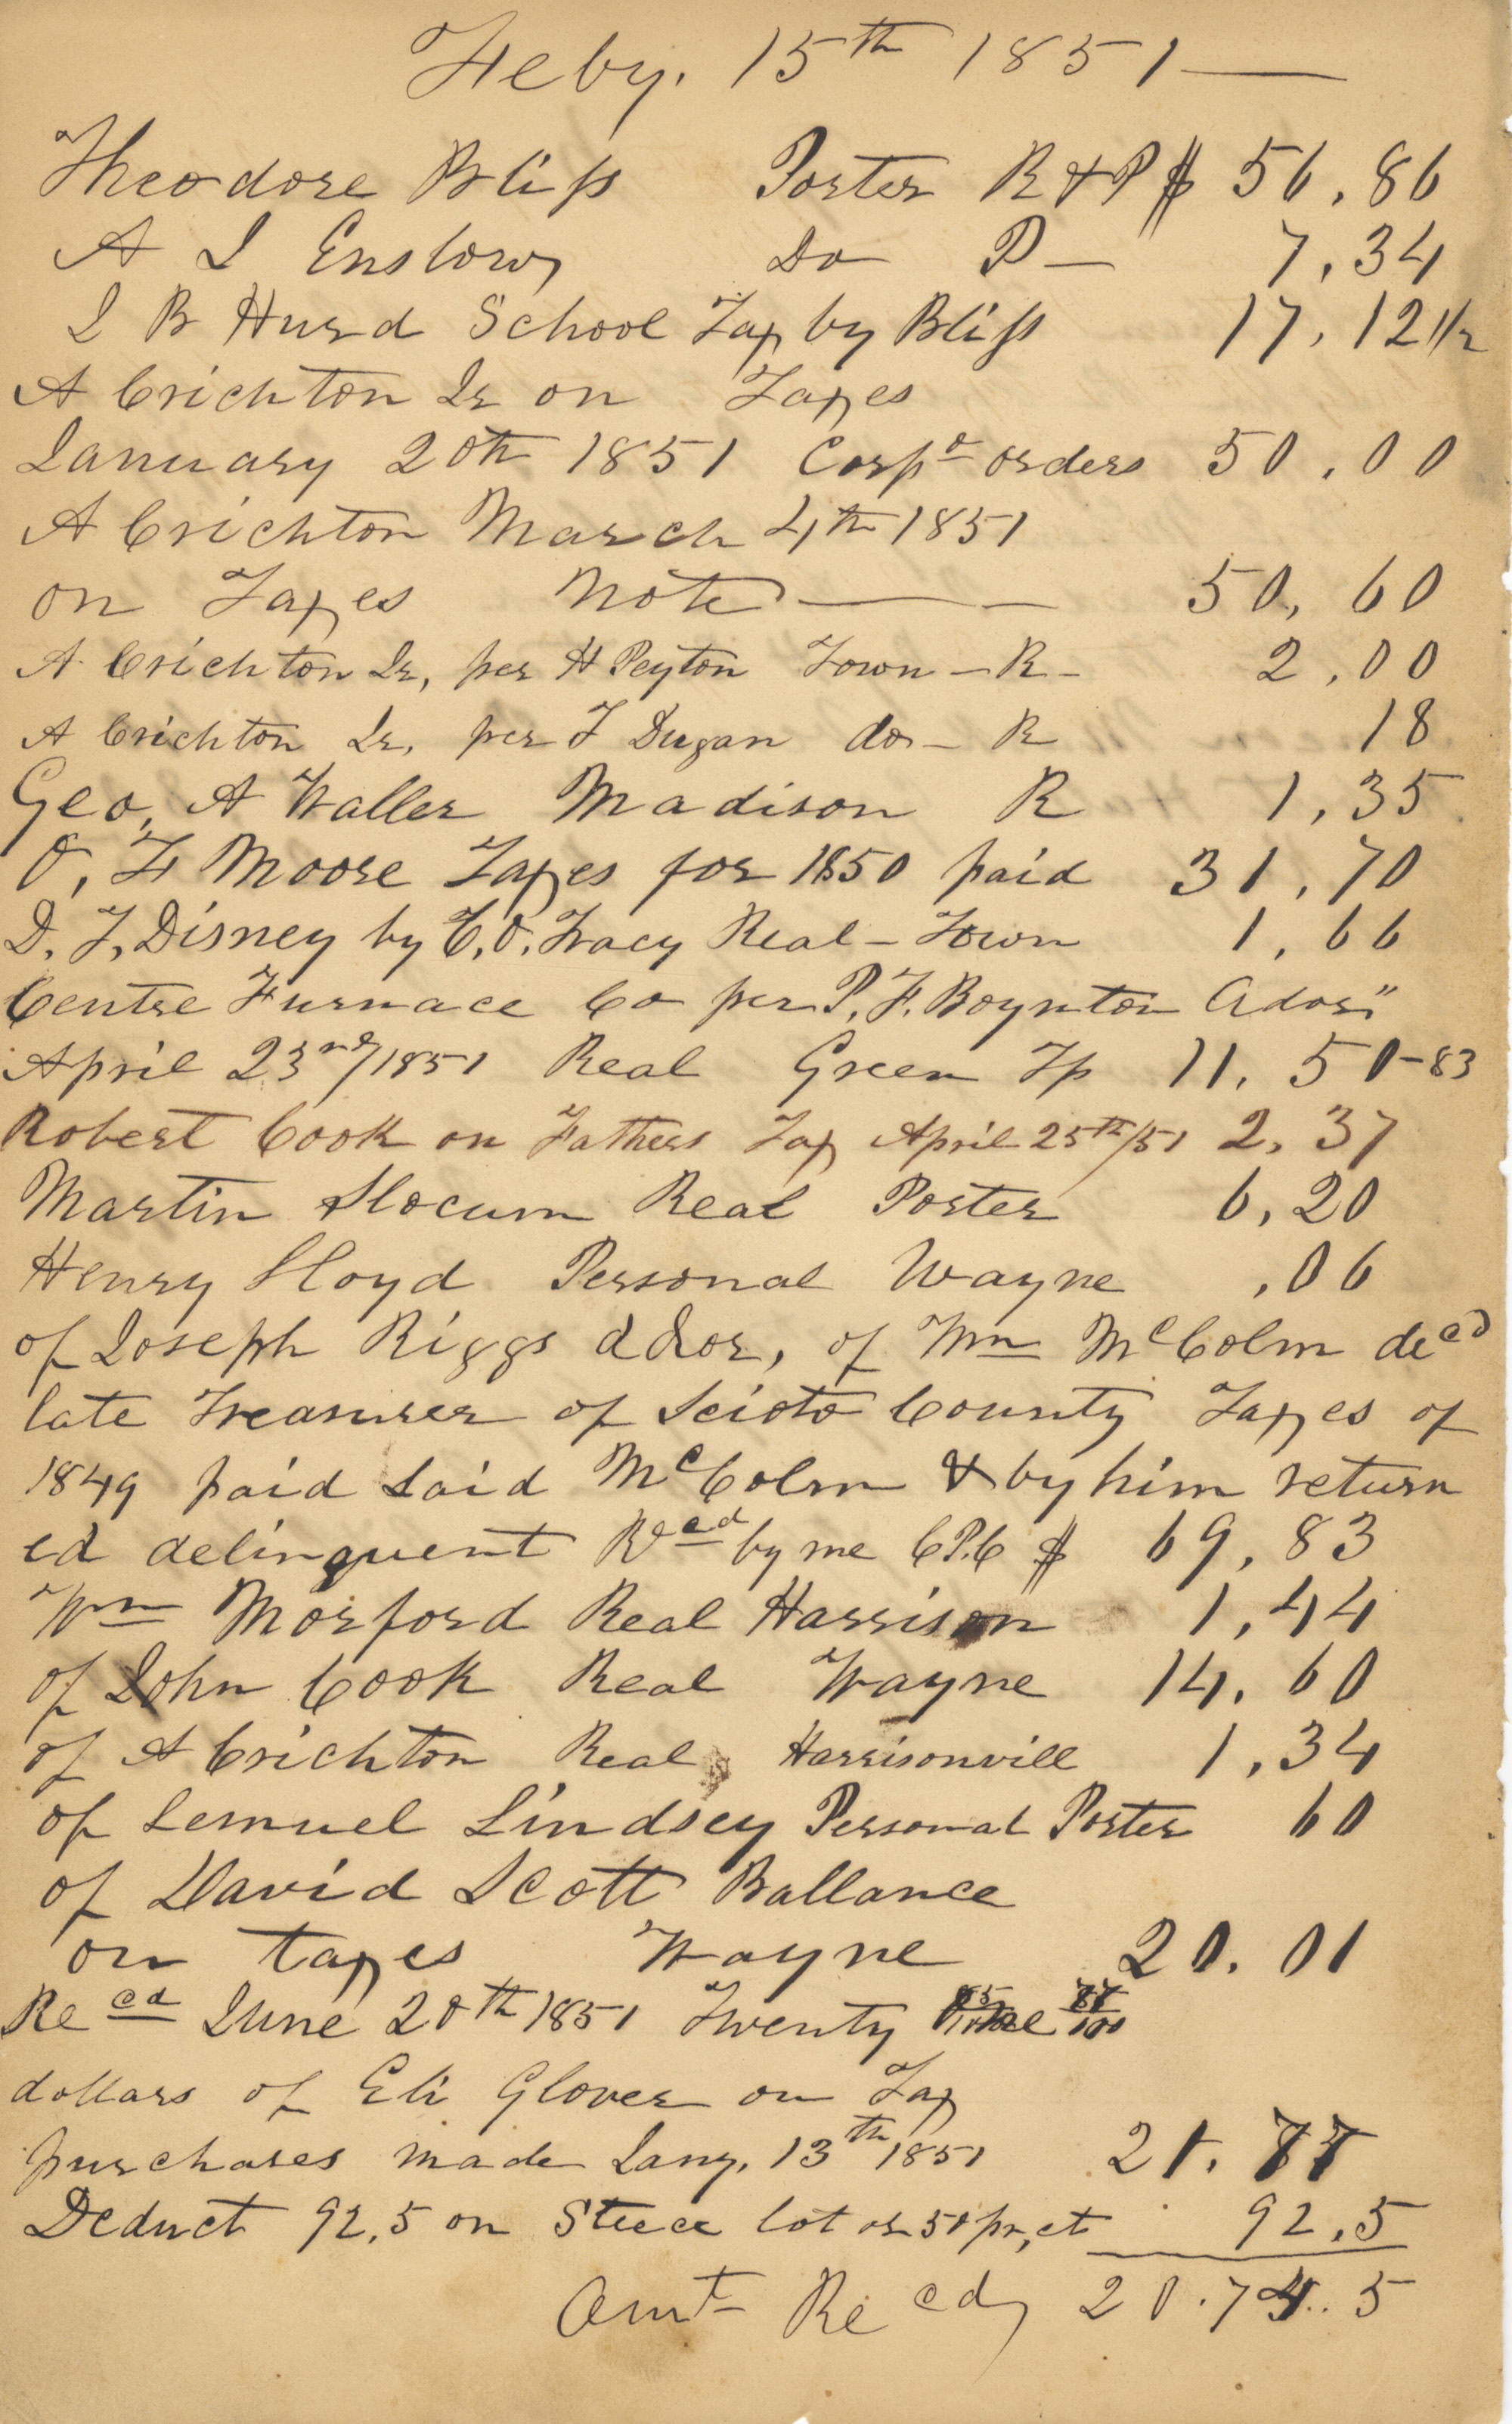 Feby. 15th 1851
Theodore Bliss Porter R & P $ 56,86
A J Enslow, Do P - 7,34
J B Hurd School Tax by Bliss 17,12 1/2
A Crichton Jr on Taxes
January 20th 1851 Corpo orders 50,00
A Crichton March 4th 1851
on Taxes Note 50,60
A. Crichton Jr, per H Peyton Town - R - 2,00
A Crichton Jr, per T Dugan do - R 18
Geo, A Waller Madison R 1,35
O, F Moore Taxes for 1850 paid 31,70
D. T, Disney by C, O, Tracy Real - Town 1,66
Centre Furnace Co per P, F. Boynton Ador"
April 23rd/1851 Real Green Tp 11, 50 - 83
Robert Cook on Fathers Tax April 25th/51 2, 37
Martin Slocum Real Porter 6,20
Henry Lloyd Personal Wayne ,06
of Joseph Riggs Ador, of Wm McColm decd
late Treasurer of Scioto County Taxes of
1849 paid said McColm & by him return
ed delinquent Recd by me C P. C $ 69,83
Wm Morford Real Harrison 1,44
of John Cook Real Wayne 14,60
of A Crichton Real Harrisonvill 1,34
of Lemuel Lindsey Personal Porter 60
of David Scott Ballance
on taxes Wayne 20.01
Recd June 20th 1851 Twenty
dollars of Eli Glover on Tax
purchases made Jany, 13th 1851 21.
Deduct 92,5 on lot or 50 pr, ct 92,5
Amt Recd, 20.74.5